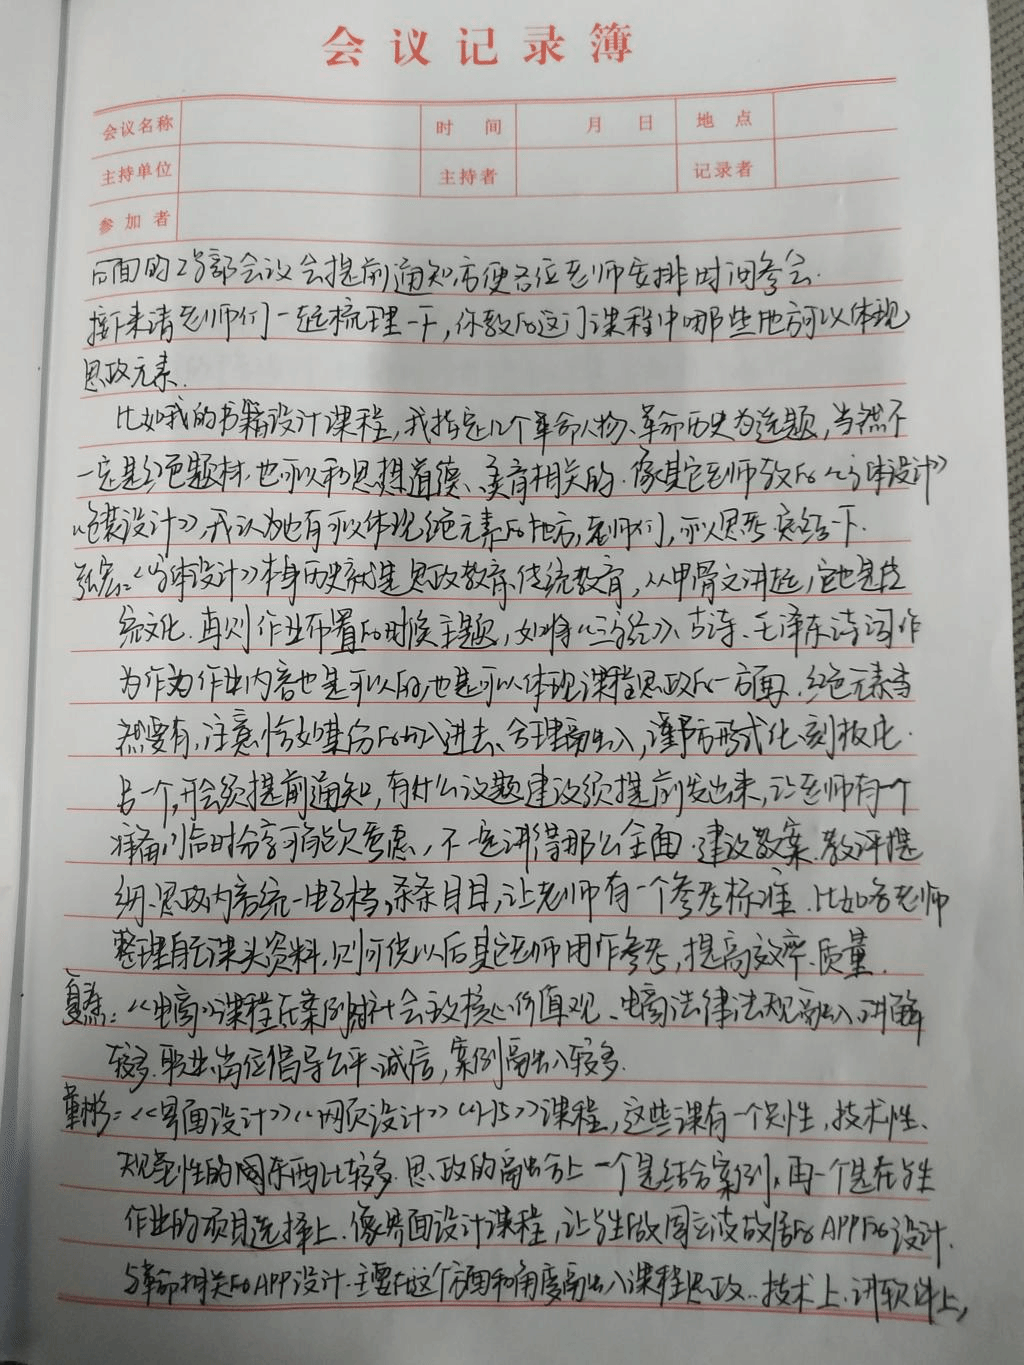 会议记录簿
会议名称 时 间 月 日 地 点
主持单位 主持者 记录者
参加者
后面的支部会议会提前通知,方便各位老师安排时间参会.
接下来请老师们一起梳理一下,你教的这门课程中哪些地方可以体现
思政元素.
比如我的书籍设计课程,我指定几个革命人物、革命历史为选题,当然不
一定是红色题材,也可以和思想道德、美育相关的.像其它老师教的《字体设计》
《包装设计》,我认为也有可以体现红色元素的地方,老师们,可以思考总结一下.
张宏:《字体设计》本身历史就是思政教育、传统教育,从甲骨文讲起,它也是传
统文化.再则作业布置的时候主题,如将《三字经》、古诗、毛泽东诗词作
为作为作业内容也是可以的,也是可以体现课程思政的一方面.红色元素当
然要有,注意恰如其份的加入进去、合理融入,谨防形式化、刻板化.
另一个,开会须提前通知,有什么议题建议须提前发出来,让老师有个
准备,临时分享可能欠考虑,不一定讲得那么全面.建议教案、教评提
纲、思政内容统一电子档,条条目目,让老师有一个参考标准.比如各老师
整理自己课头资料,则可供以后其它老师用作参考,提高效率、质量.
:《电商》课程在案例对社会主义核心价值观、电商法律法规融入讲解
较多.职业、岗位倡导公平、诚信,案例融入较多.
董彬:《界面设计》《网页设计》《H5》课程,这些课有一个共性,技术性、
规范性的东西比较多.思政的融合上一个是结合案例,再一个是在学生
作业的项目选择上.像界面设计课程,让学生做周立波故居的APP的设计.
与革命相关的APP设计.主要在这个方面和角度融入课程思政.技术上.讲软件上,